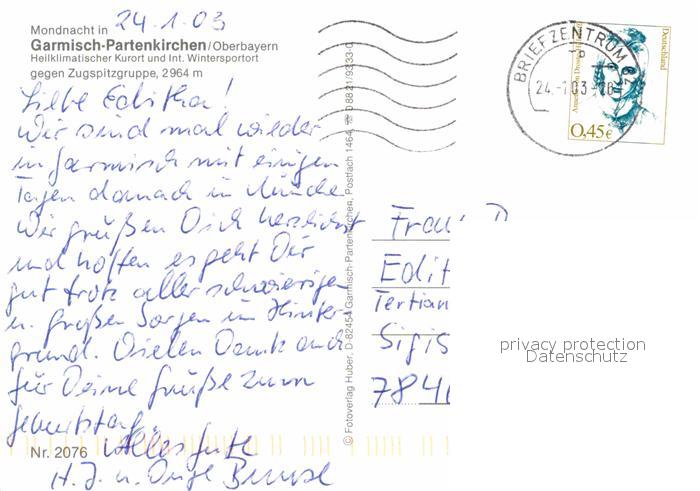 24.1.03
Mondnacht in
Garmisch-Partenkirchen/Oberbayern
Heilklimatischer Kurort und Int. Wintersportort
gegen Zugspitzgruppe, 2964 m
Liebe Editha!
Wir sind mal wieder
in Garmisch mit einigen
Tagen danach in
Wir grüßen Dich herzlichst
und hoffen es geht Dir
gut trotz aller schwierigen
u. großen Sorgen im Hinter-
grund. Vielen Dank auch
für Deine Grüße zum
Geburtstag.
Alles Gute
H. J. u.
Nr. 2076
© Fotoverlag Huber, D-82454 Garmisch-Partenkirchen, Postfach 1464, ☎ 08821/9333-0
BRIEFZENTRUM 82
24.-1.03
Deutschland
0,45€
Frau
Edit
Tertian
Sigis
784
privacy protection
Datenschutz